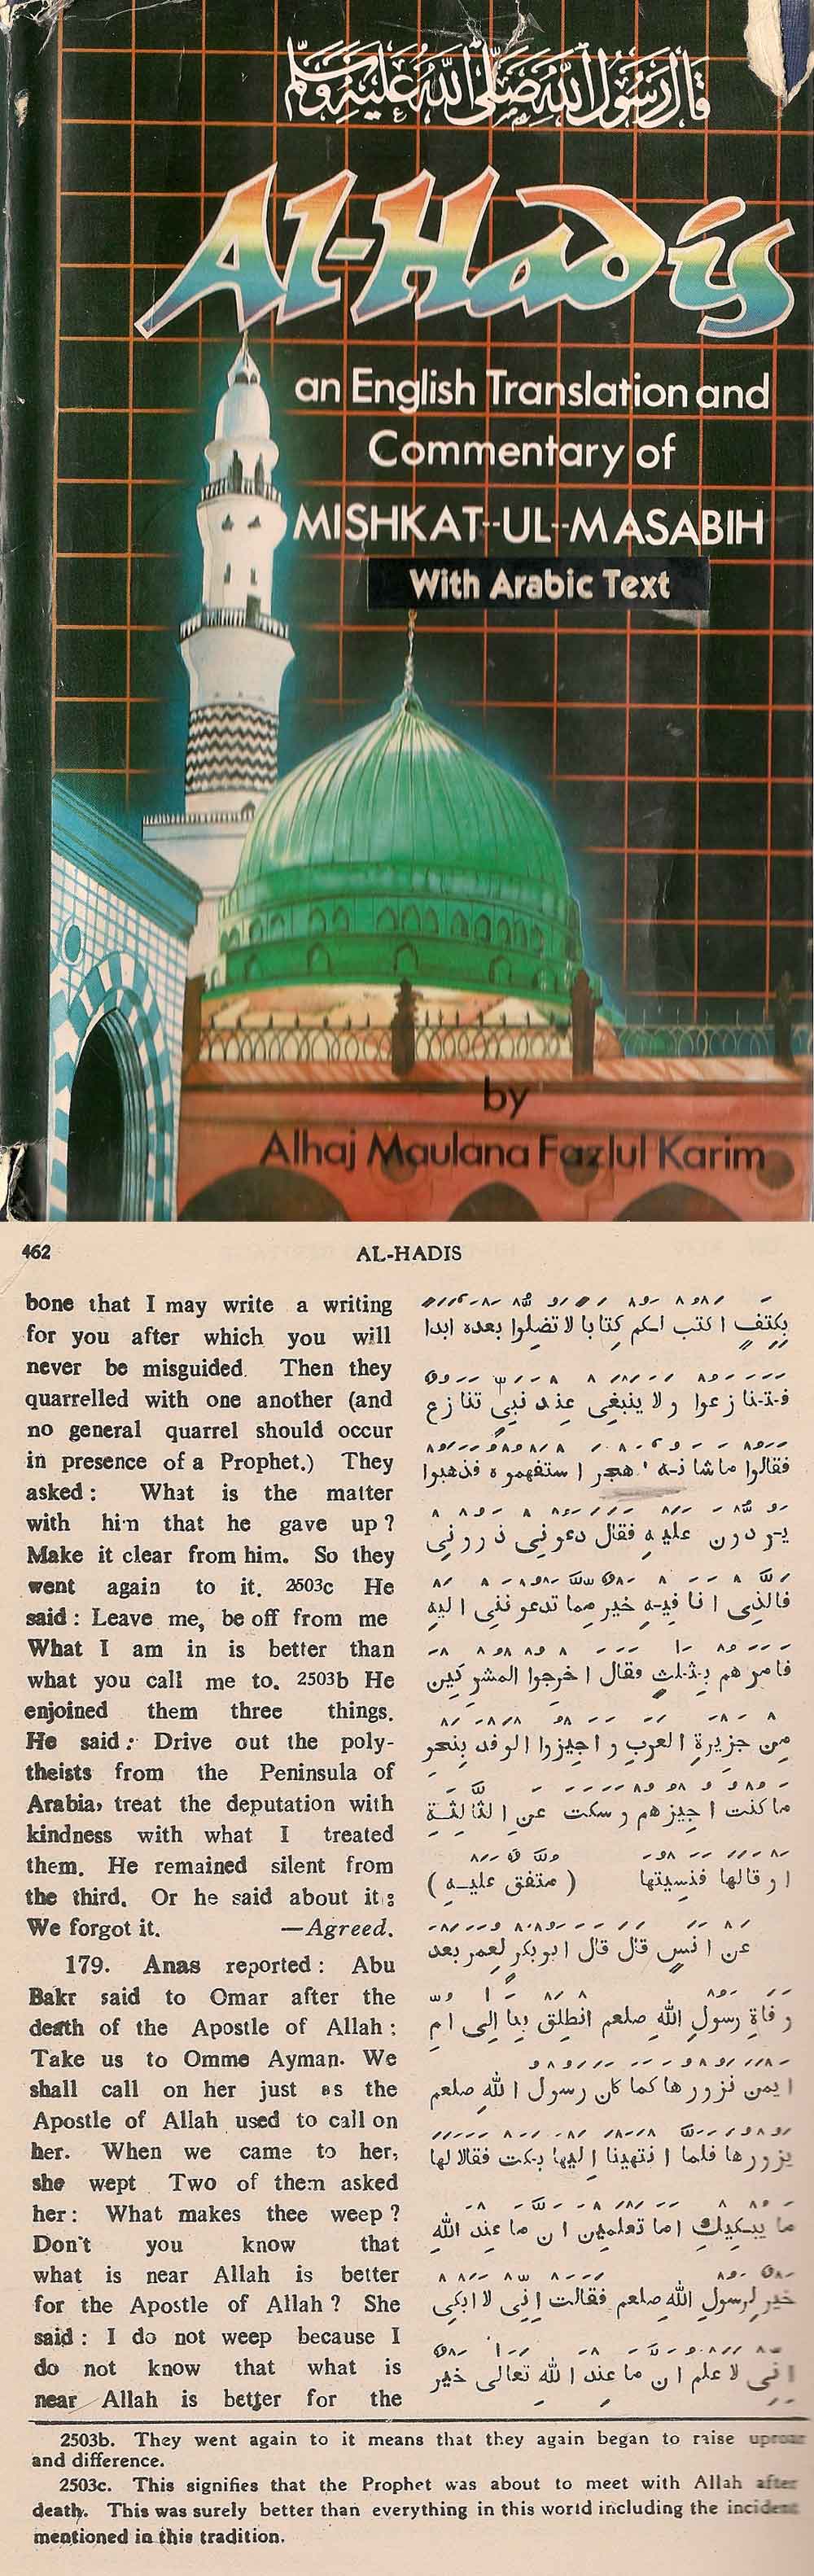 قال رسول الله صلى الله عليه وسلم
Al-Hadis
an English Translation and
Commentary of
MISHKAT--UL--MASABIH
With Arabic Text
by
Alhaj Maulana Fazlul Karim
462
AL-HADIS
bone that I may write a writing
for you after which you will
never be misguided. Then they
quarrelled with one another (and
no general quarrel should occur
in presence of a Prophet.) They
asked: What is the matter
with him that he gave up?
Make it clear from him. So they
went again to it. 2503c He
said: Leave me, be off from me
What I am in is better than
what you call me to. 2503b He
enjoined them three things.
He said: Drive out the poly-
theists from the Peninsula of
Arabia, treat the deputation with
kindness with what I treated
them. He remained silent from
the third. Or he said about it:
We forgot it. —Agreed.
179. Anas reported: Abu
Bakr said to Omar after the
death of the Apostle of Allah:
Take us to Omme Ayman. We
shall call on her just as the
Apostle of Allah used to call on
her. When we came to her,
she wept. Two of them asked
her: What makes thee weep?
Don't you know that
what is near Allah is better
for the Apostle of Allah? She
said: I do not weep because I
do not know that what is
near Allah is better for the
بكتف اكتب لكم كتابا لا تضلوا بعده ابدا
فتنازعوا ولا ينبغى عند نبى تنازع
فقالوا ما شانه ' هجر استفهموه فذهبوا
يردون عليه فقال دعونى ذرونى
فالذى انا فيه خير مما تدعوننى اليه
فامرهم بثلث فقال اخرجوا المشركين
من جزيرة العرب واجيزوا الوفد بنحو
ما كنت اجيزهم وسكت عن الثالثة
او قالها فنسيتها ( متفق عليه )
عن انس قال قال ابو بكر لعمر بعد
وفاة رسول الله صلعم انطلق بنا الى ام
ايمن نزورها كما كان رسول الله صلعم
يزورها فلما انتهينا اليها بكت فقالا لها
ما يبكيك اما تعلمين ان ما عند الله
خير لرسول الله صلعم فقالت انى لا ابكى
انى لا علم ان ما عند الله تعالى خير
2503b. They went again to it means that they again began to raise uproar
and difference.
2503c. This signifies that the Prophet was about to meet with Allah after
death. This was surely better than everything in this world including the incident
mentioned in this tradition.